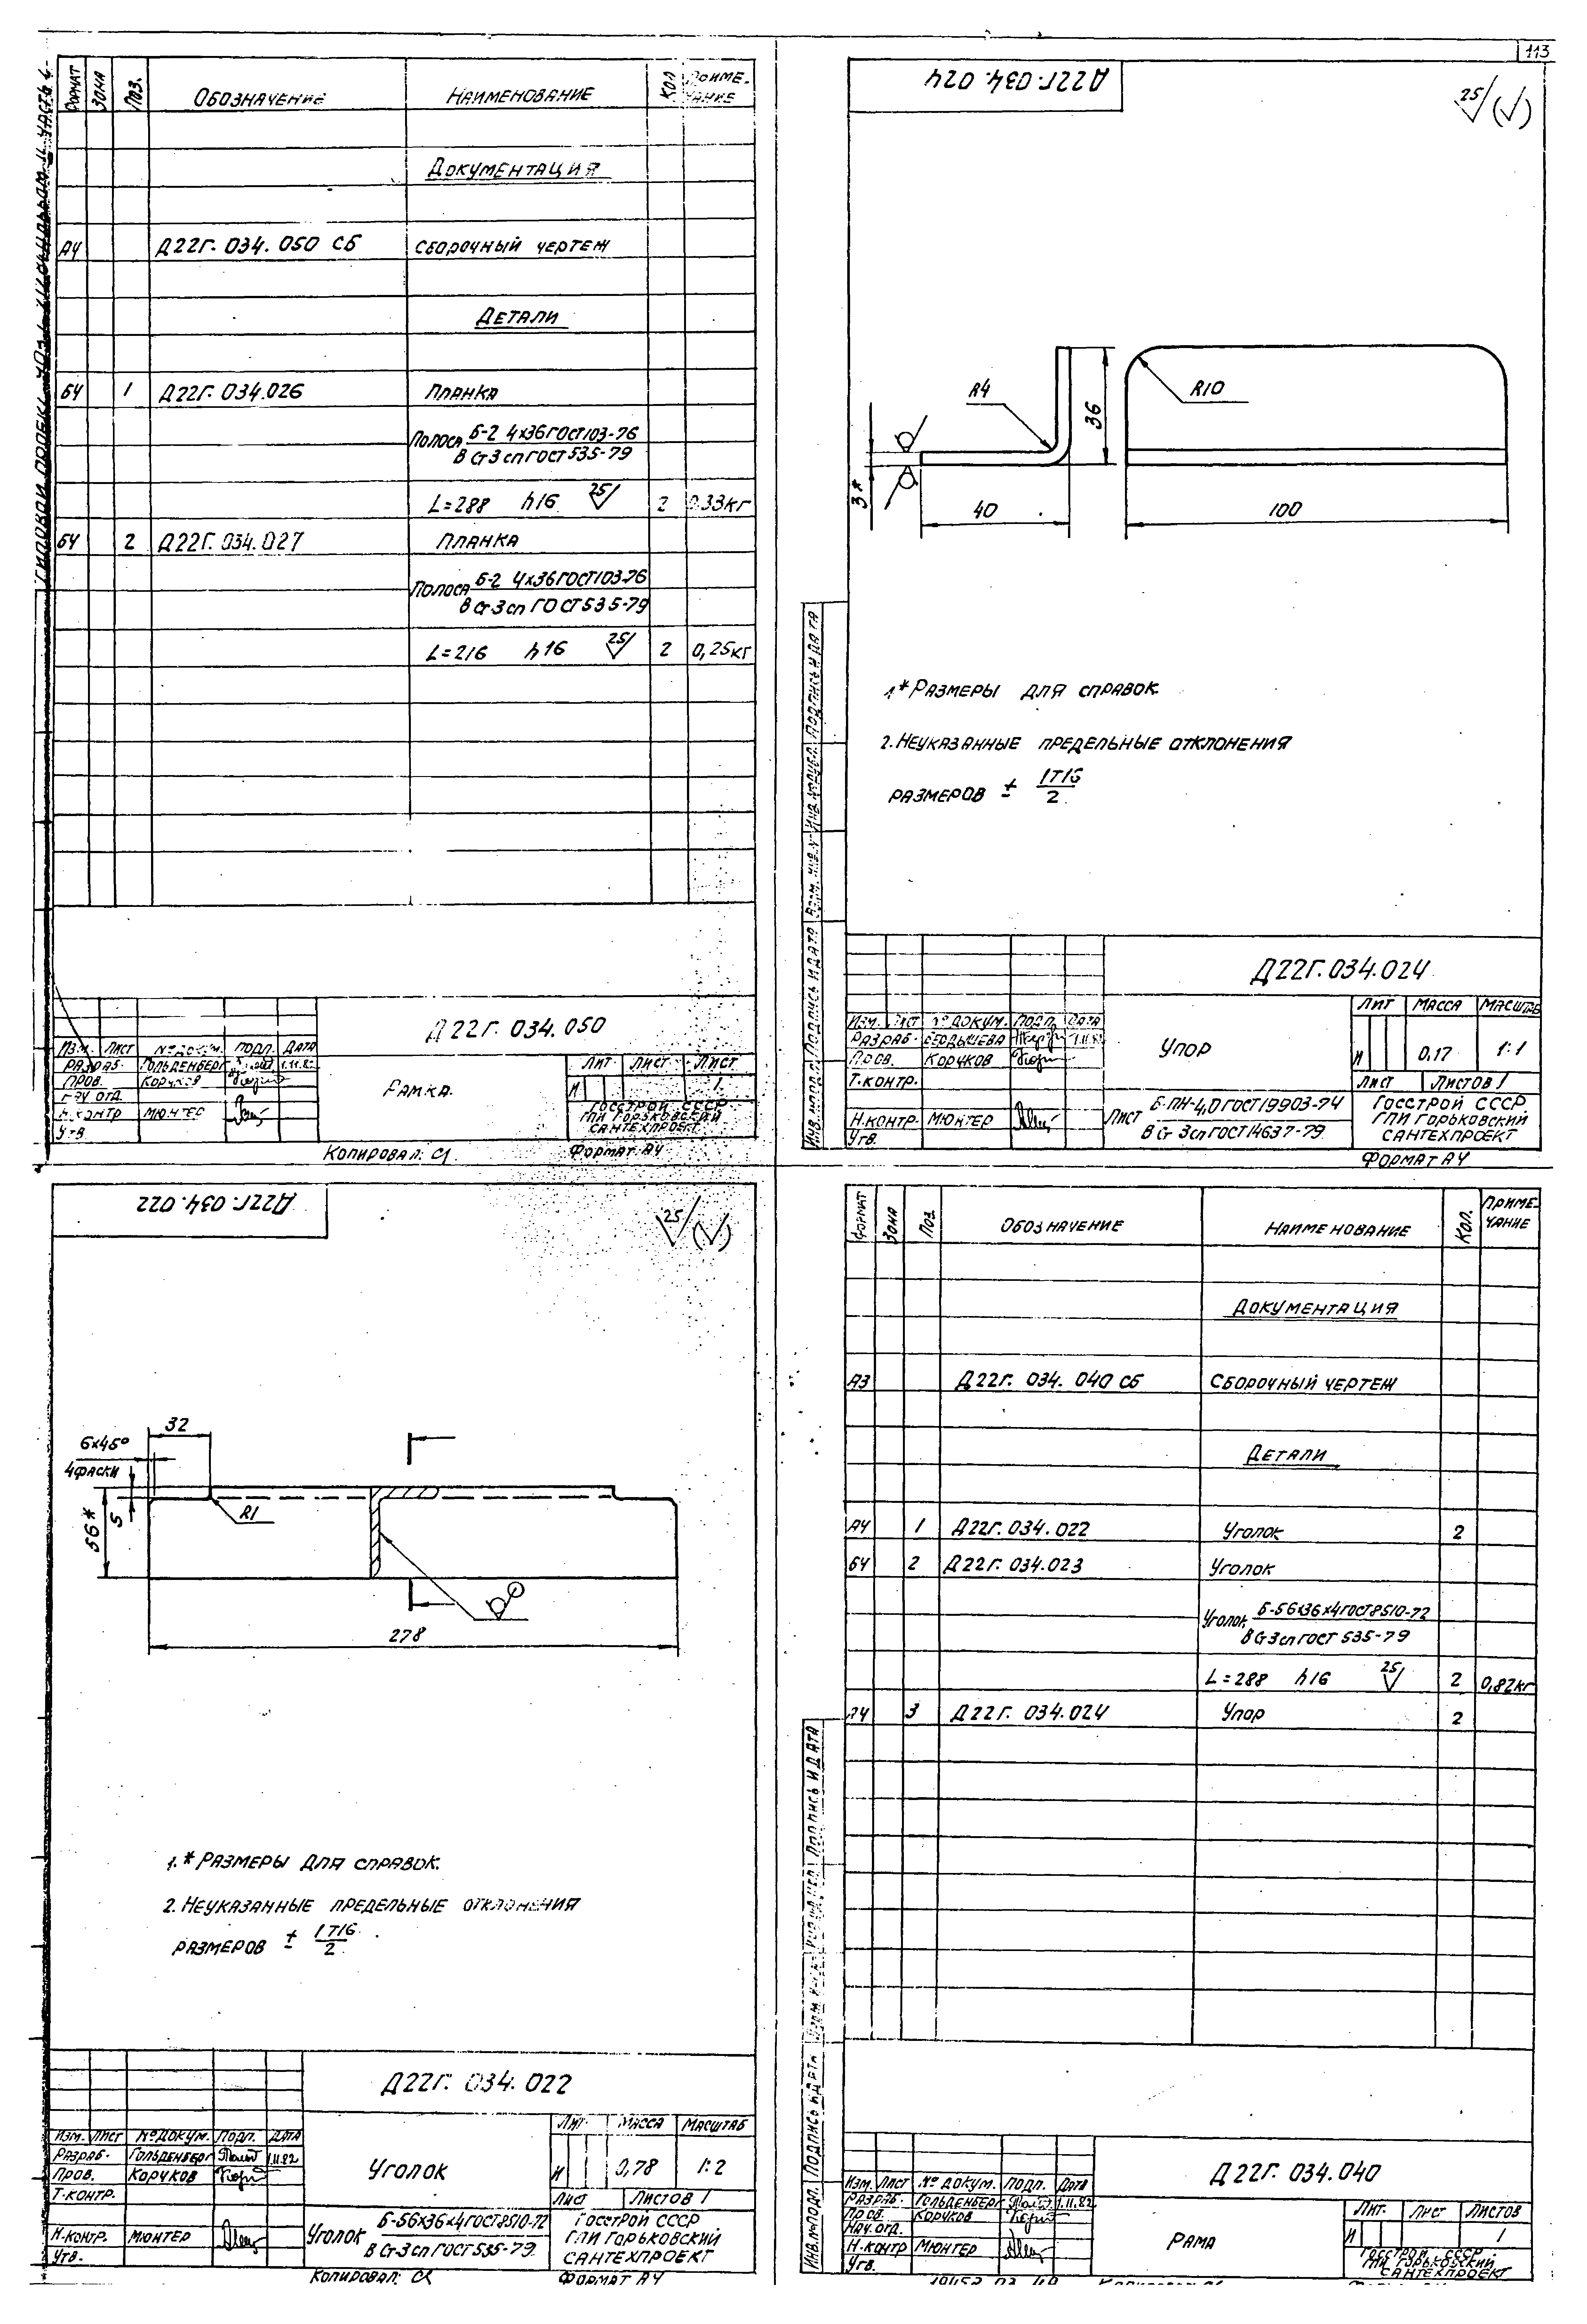 113
ФОРМАТ ЗОНА ПОЗ. ОБОЗНАЧЕНИЕ НАИМЕНОВАНИЕ КОЛ ПРИМЕ-
ЧАНИЕ
ДОКУМЕНТАЦИЯ
А4 Д22Г. 034. 050 СБ СБОРОЧНЫЙ ЧЕРТЕЖ
ДЕТАЛИ
БЧ 1 Д22Г. 034.026 ПЛАНКА
ПОЛОСА Б-2 4х36 ГОСТ103-76
В Ст3сп ГОСТ535-79
L=288 h16 25 2 0,33кг
БЧ 2 Д22Г. 034.027 ПЛАНКА
ПОЛОСА Б-2 4х36 ГОСТ103-76
В Ст3сп ГОСТ535-79
L=216 h16 25 2 0,25кг
Д22Г. 034. 050
ИЗМ. ЛИСТ № ДОКУМ. ПОДП. ДАТА
РАЗРАБ. ГОЛЬДЕНБЕРГ 1.11.82
ПРОВ. КОРУКОВ
НАЧ. ОТД.
Н.КОНТР МЮНТЕР
УТВ.
РАМКА.
ЛИТ ЛИСТ ЛИСТ
И 1
ГОССТРОЙ СССР
ГПИ ГОРЬКОВСКИЙ
САНТЕХПРОЕКТ
КОПИРОВАЛ: ФОРМАТ А4
Д22Г. 034. 024
25 (√)
R4
36
R10
3*
40
100
1* РАЗМЕРЫ ДЛЯ СПРАВОК.
2. НЕУКАЗАННЫЕ ПРЕДЕЛЬНЫЕ ОТКЛОНЕНИЯ
РАЗМЕРОВ ± IT16
2
ПОДПИСЬ И ДАТА
ПОДПИСЬ И ДАТА
ИНВ.№ПОДЛ.
Д22Г.034.024
ИЗМ. ЛИСТ № ДОКУМ. ПОДП. ДАТА
РАЗРАБ. СЕРДЫШЕВА 1.11.82
ПРОВ. КОРУКОВ
Т.КОНТР.
Н.КОНТР. МЮНТЕР
УТВ.
УПОР
ЛИТ МАССА МАСШТАБ
И 0,17 1:1
ЛИСТ ЛИСТОВ 1
ЛИСТ Б-ПН-4,0 ГОСТ19903-74
В Ст 3сп ГОСТ14637-79
ГОССТРОЙ СССР
ГПИ ГОРЬКОВСКИЙ
САНТЕХПРОЕКТ
ФОРМАТ А4
Д22Г. 034. 022
25 (√)
32
6х45°
4 ФАСКИ
56*
5
R1
278
1.* РАЗМЕРЫ ДЛЯ СПРАВОК.
2. НЕУКАЗАННЫЕ ПРЕДЕЛЬНЫЕ ОТКЛОНЕНИЯ
РАЗМЕРОВ ± IT16
2
Д22Г. 034. 022
ИЗМ. ЛИСТ № ДОКУМ. ПОДП. ДАТА
РАЗРАБ. ГОЛЬДЕНБЕРГ 1.11.82
ПРОВ. КОРУКОВ
Т.КОНТР.
Н.КОНТР. МЮНТЕР
УТВ.
УГОЛОК
ЛИТ. МАССА МАСШТАБ
И 0,78 1:2
ЛИСТ ЛИСТОВ 1
УГОЛОК Б-56х36х4 ГОСТ8510-72
В Ст3сп ГОСТ535-79
ГОССТРОЙ СССР
ГПИ ГОРЬКОВСКИЙ
САНТЕХПРОЕКТ
КОПИРОВАЛ: ФОРМАТ А4
ФОРМАТ ЗОНА ПОЗ. ОБОЗНАЧЕНИЕ НАИМЕНОВАНИЕ КОЛ. ПРИМЕ-
ЧАНИЕ
ДОКУМЕНТАЦИЯ
А3 Д22Г. 034. 040 СБ СБОРОЧНЫЙ ЧЕРТЕЖ
ДЕТАЛИ
А4 1 Д22Г. 034. 022 УГОЛОК 2
БЧ 2 Д22Г. 034.023 УГОЛОК
УГОЛОК Б-56х36х4 ГОСТ8510-72
В Ст3сп ГОСТ 535-79
L=288 h16 25 2 0,82кг
А4 3 Д22Г. 034.024 УПОР 2
ПОДПИСЬ И ДАТА
ПОДПИСЬ И ДАТА
ИНВ.№ПОДЛ.
Д22Г. 034.040
ИЗМ. ЛИСТ № ДОКУМ. ПОДП. ДАТА
РАЗРАБ. ГОЛЬДЕНБЕРГ 1.11.82
ПРОВ. КОРУКОВ
НАЧ.ОТД.
Н.КОНТР МЮНТЕР
УТВ.
РАМА
ЛИТ. ЛИСТ ЛИСТОВ
И 1
ГОССТРОЙ СССР
ГПИ ГОРЬКОВСКИЙ
САНТЕХПРОЕКТ